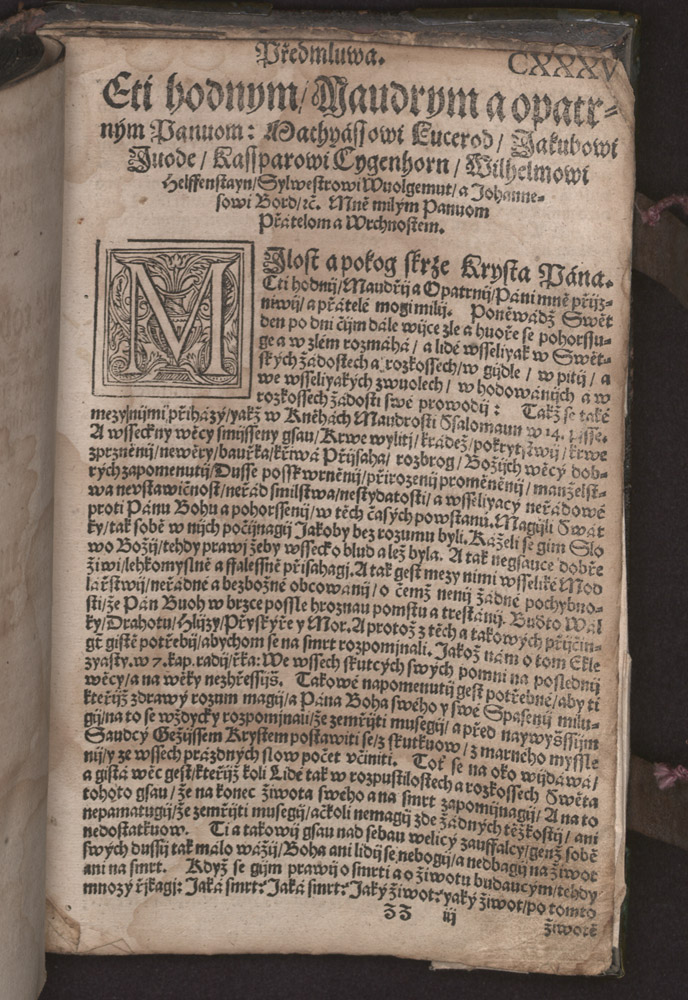 Předmluwa.
CXXXV
Cti hodnym/ Maudrym a opatr⸗
ným Panuom: Mathyássowi Eucerod/ Jakubowi
Juode/ Kassparowi Cygenhorn/ Wilhelmowi
Helffenstayn/ Sylwestrowi Wuolgemut/ a Johanne⸗
sowi Bord/ ꝛc. Mně milým Panuom
Přatelom a Wrchnostem.
MIlost a pokog skrže Krysta Pána.
Cti hodnij/ Maudřij a Opatrnij/ Páni mně přijz⸗
niwij/ a přátelé mogi milij. Poněwádž Swět
den po dni čijm dále wijce zle a huoře se pohorssu⸗
ge a w zlém rozmáhá/ a lidé wsseliyak w Swět⸗
ských žádostech a rozkossech/ w gijdle/ w pitij/ a
we wsseliyakých zwuolech/ w hodowánijch a w
rozkossech žádosti swé prowodij: Takž se také
mezy nijmi přiházý/ yakž w Kněhách Maudrosti Ssalomaun w 14. pisse.
A wsseckny wěcy smijsseny gsau/ Krwe wylitij/ krádež/ pokrytstwij/ krwe
zprzněnij/ newěry/ bauřka/ křiwá Přijsaha/ rozbrog/ Božijch wěcy dob⸗
rých zapomenutij/ Dusse possk wrněnij/ přirozenij proměněnij/ manželst⸗
wa neustawičnost/ neřád smilstwa/ nestydatosti/ a wsseliyacý neřádowé
proti Pánu Bohu a pohorssenij/ w těch časých powstanú. Magijli Swát⸗
ky/ tak sobě w nijch počijnagij Jakoby bez rozumu byli. Káželi se gim Slo
wo Božij/ tehdy prawj žeby wssecko blud a lež byla. A tak negsauce dobře
žiwi/ lehkomyslně a ffalessně přisahagj. A tak gest mezy nimi wsseliké Mod
lářstwij/ neřádné a bezbožné obcowánij/ o čemž nenij žádné pochybno⸗
sti/ že Pán Buoh w brzce possle hroznau pomstu a trestánij. Budto Wál
ky/ Drahotu/ Hlijzy/ Přyskýře y Mor. A protož z těch a takowých přijčin⸗
gt gistě potřebij/ abychom se na smrt rozpomjnali. Jakož nám o tom Ekle
zyasty. w 7. kap. radij/ řka: We wssech skutcých swých pomni na poslednij
wěcy/ a na wěky nezhřessijš. Takowé napomenutij gest potřebné/ aby ti
kteřijž zdrawý rozum magij/ a Pána Boha swého y swé Spasenij milu⸗
gij/ na to se wždycky rozpomjnali/ že zemřijti musegij/ a před naywyšssijm
Saudcý Gežijssem Krystem postawiti se/ z skutkuow/ z marného myssle
nij/ y ze wssech prázdných slow počet včiniti. Toť se na oko wijdáwá/
a gistá wěc gest/ kteřijž koli Lidé tak w rozpustilostech a rozkossech Swěta
tohoto gsau/ že na konec žiwota swého a na smrt zapomijnagij/ A na to
nepamatugij/ že zemřijti musegij/ ačkoli nemagij zde žádných těžkostij/ ani
nedostatkuow. Ti a takowij gsau nad sebau welicý zauffalcy/ genž sobě
swých dussij tak málo wážij/ Boha ani lidij se nebogij/ a nedbagij na žiwot
ani na smrt. Když se gijm prawij o smrti a o žiwotu budaucým/ tehdy
mnozý řjkagj: Jaká smrt? Jaká smrt? Jaký žiwot? yaký žiwot/ po tomto
ZZ iij
žiwotě